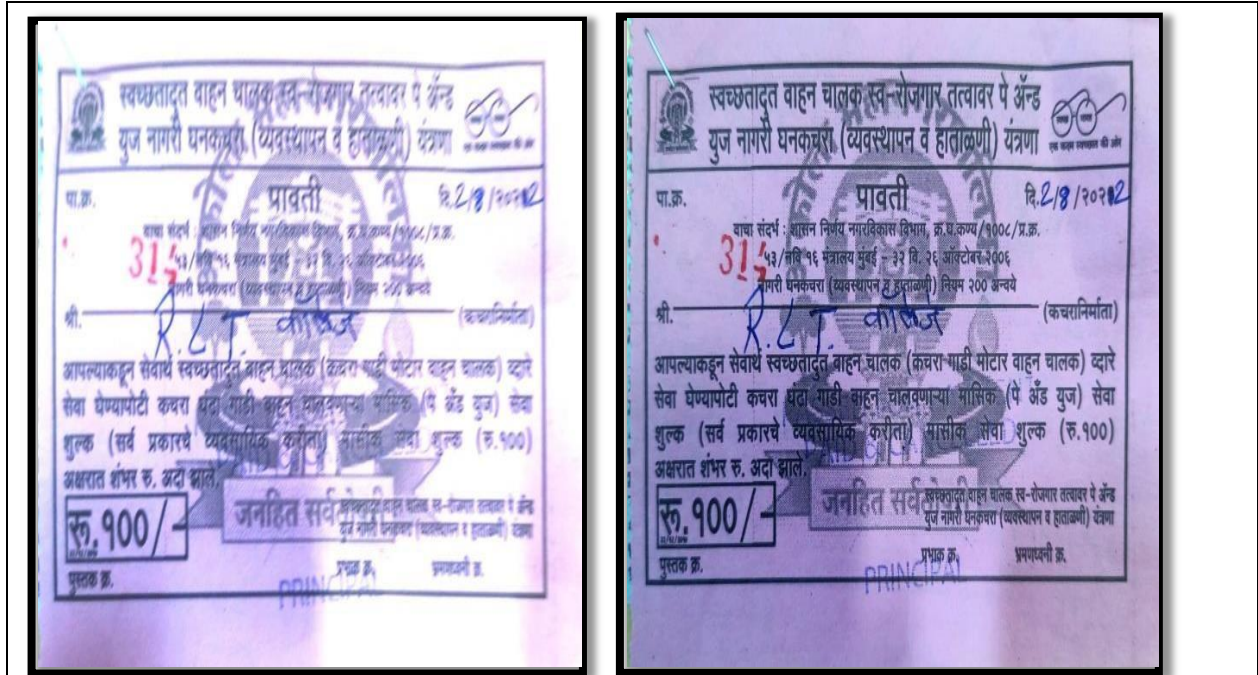 स्वच्छतादुत वाहन चालक स्व-रोजगार तत्वावर पे ॲन्ड
युज नागरी घनकचरा (व्यवस्थापन व हाताळणी) यंत्रणा
एक कदम स्वच्छता की ओर
पा.क्र.
पावती
दि.2/8/२०२2
वाचा संदर्भ : शासन निर्णय नगरविकास विभाग, क्र.घ.कण्य/१००८/प्र.क्र.
५३/नवि १६ मंत्रालय मुंबई - ३२ दि. २६ ऑक्टोबर २००६
नागरी घनकचरा (व्यवस्थापन व हाताळणी) नियम २00 अन्वये
श्री. R.L.T. कॉलेज (कचरानिर्माता)
आपल्याकडून सेवार्थ स्वच्छतादुत वाहन चालक (कचरा गाडी मोटार वाहन चालक) व्दारे
सेवा घेण्यापोटी कचरा घंटा गाडी वाहन चालवणाऱ्या मासिक (पे अँड युज) सेवा
शुल्क (सर्व प्रकारचे व्यवसायिक करीता) मासीक सेवा शुल्क (रु.१००)
अक्षरात शंभर रु. अदा झाले.
रू.१००/-
जनहित सर्वतोपरी
स्वच्छतादुत वाहन चालक स्व-रोजगार तत्वावर पे ॲन्ड
युज नागरी घनकचरा (व्यवस्थापन व हाताळणी) यंत्रणा
पुस्तक क्र.
प्रभाक क्र.
भ्रमणध्वनी क्र.
PRINCIPAL
स्वच्छतादुत वाहन चालक स्व-रोजगार तत्वावर पे ॲन्ड
युज नागरी घनकचरा (व्यवस्थापन व हाताळणी) यंत्रणा
एक कदम स्वच्छता की ओर
पा.क्र.
पावती
दि.2/8/२०२2
वाचा संदर्भ : शासन निर्णय नगरविकास विभाग, क्र.घ.कण्य/१००८/प्र.क्र.
५३/नवि १६ मंत्रालय मुंबई - ३२ दि. २६ ऑक्टोबर २००६
नागरी घनकचरा (व्यवस्थापन व हाताळणी) नियम २00 अन्वये
श्री. R.L.T. कॉलेज (कचरानिर्माता)
आपल्याकडून सेवार्थ स्वच्छतादुत वाहन चालक (कचरा गाडी मोटार वाहन चालक) व्दारे
सेवा घेण्यापोटी कचरा घंटा गाडी वाहन चालवणाऱ्या मासिक (पे अँड युज) सेवा
शुल्क (सर्व प्रकारचे व्यवसायिक करीता) मासीक सेवा शुल्क (रु.१००)
अक्षरात शंभर रु. अदा झाले.
रू.१००/-
जनहित सर्वतोपरी
स्वच्छतादुत वाहन चालक स्व-रोजगार तत्वावर पे ॲन्ड
युज नागरी घनकचरा (व्यवस्थापन व हाताळणी) यंत्रणा
पुस्तक क्र.
प्रभाक क्र.
भ्रमणध्वनी क्र.
PRINCIPAL